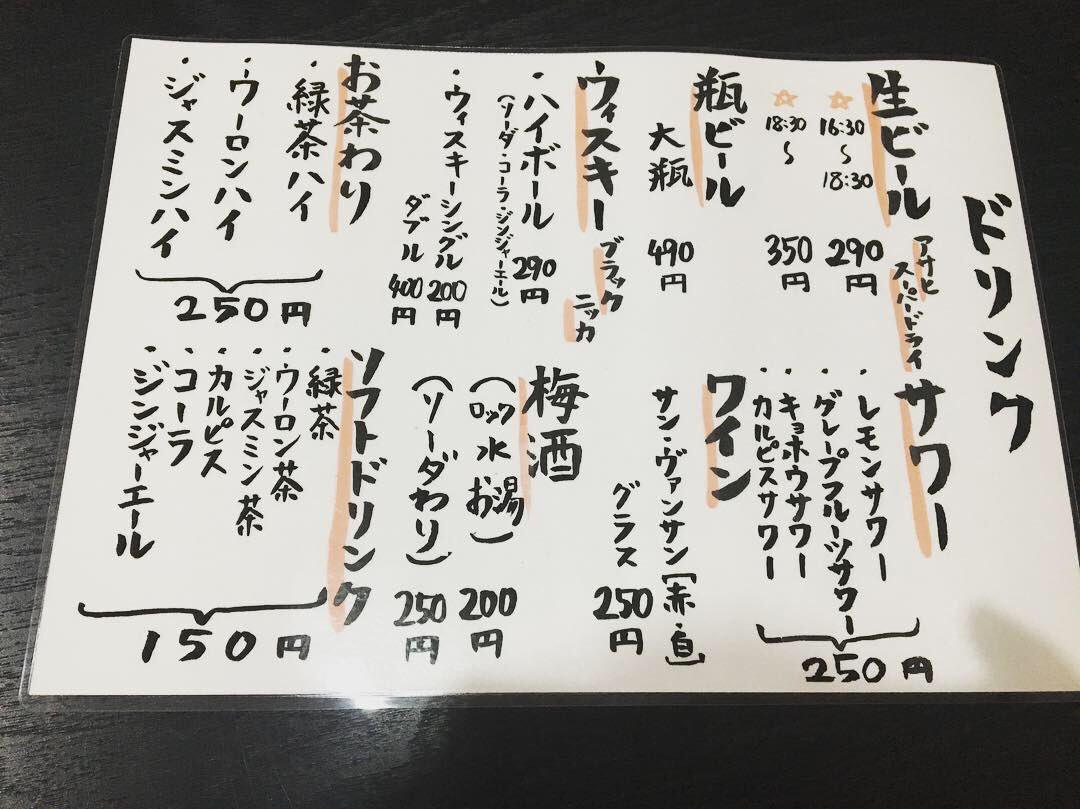 ドリンク
生ビール
アサヒ
スーパードライ
☆16:30〜18:30 290円
☆18:30〜 350円
瓶ビール
大瓶 490円
ウィスキー
ブラック
ニッカ
・ハイボール 290円
(ソーダ・コーラ・ジンジャーエール)
・ウィスキーシングル 200円
ダブル 400円
お茶わり
・緑茶ハイ
・ウーロンハイ
・ジャスミンハイ
250円
サワー
・レモンサワー
・グレープフルーツサワー
・キョホウサワー
・カルピスサワー
250円
ワイン
サン・ヴァンサン[赤・白]
グラス 250円
梅酒
(ロック 水 お湯) 200円
(ソーダわり) 250円
ソフトドリンク
・緑茶
・ウーロン茶
・ジャスミン茶
・カルピス
・コーラ
・ジンジャーエール
150円